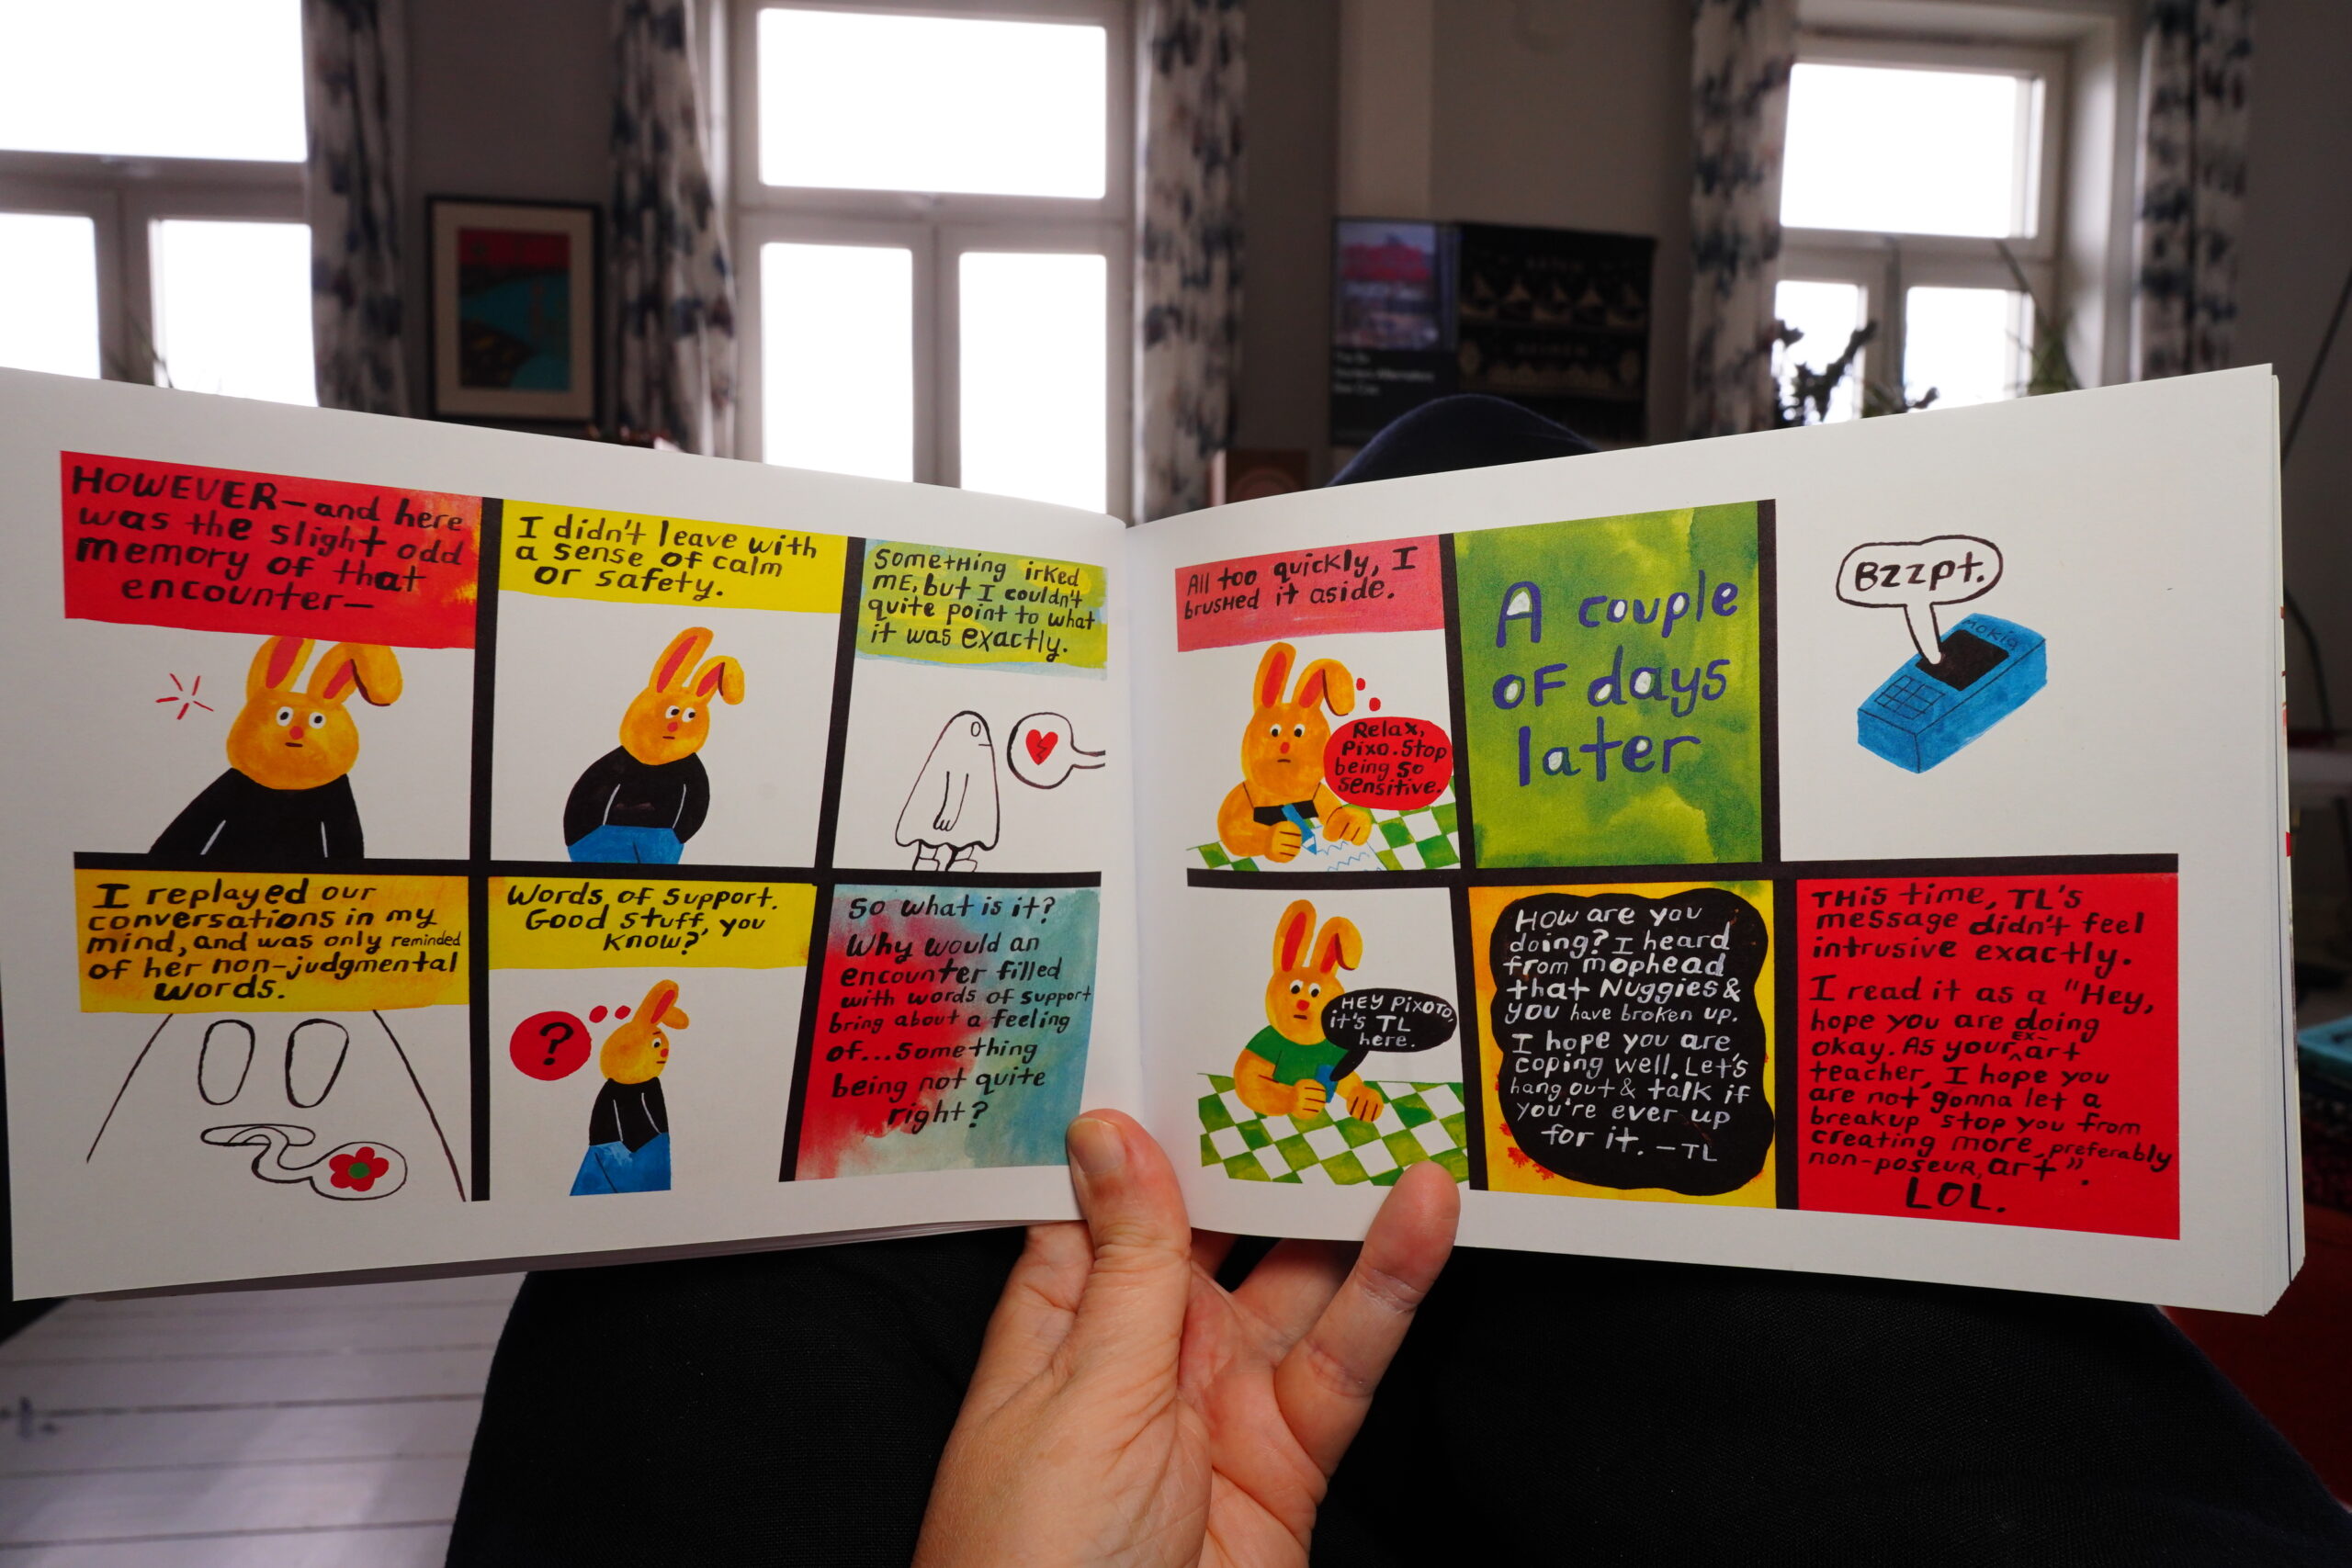 HOWEVER—and here
was the slight odd
memory of that
encounter—
I didn't leave with
a sense of calm
or safety.
Something irked
ME, but I couldn't
quite point to what
it was exactly.
I replayed our
conversations in my
mind, and was only reminded
of her non-judgmental
words.
Words of support.
Good stuff, you
know?
?
So what is it?
Why would an
encounter filled
with words of support
bring about a feeling
of...something
being not quite
right?
All too quickly, I
brushed it aside.
Relax,
Pixo. Stop
being so
sensitive.
A couple
of days
later
Bzzpt.
mokia
HEY PIXOTO,
it's TL
here.
How are you
doing? I heard
from mophead
that Nuggies &
you have broken up.
I hope you are
coping well. Let's
hang out & talk if
you're ever up
for it. —TL
This time, TL's
message didn't feel
intrusive exactly.
I read it as a "Hey,
hope you are doing
okay. As your ex-art
teacher, I hope you
are not gonna let a
breakup stop you from
creating more, preferably
non-poseur, art".
LOL.